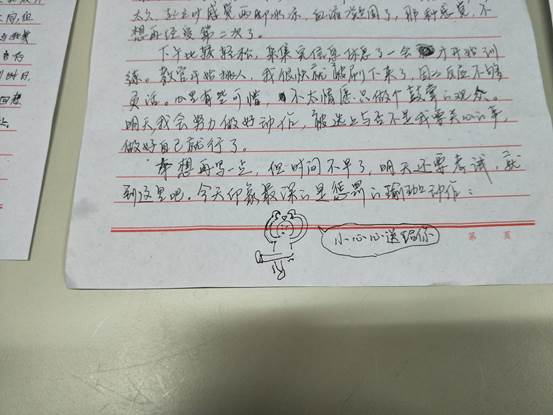 太久,站立时感觉两脚冰凉,血液凝固了,那种感觉,不
想再经受第二次了。
下午比较轻松,采集完信息休息了一会 才开始训
练。教官开始挑人,我很快就被刷下来了,因为反应不够
灵活。心里有些可惜, 不太情愿只做个鼓掌的观众。
明天我会努力做好动作,被选上与否不是我要关心的事,
做好自己就行了。
本想再写一点,但时间不早了,明天还要考试,就
到这里吧。今天印象最深的是您累的瑜珈动作:
小心心送给你
第 页